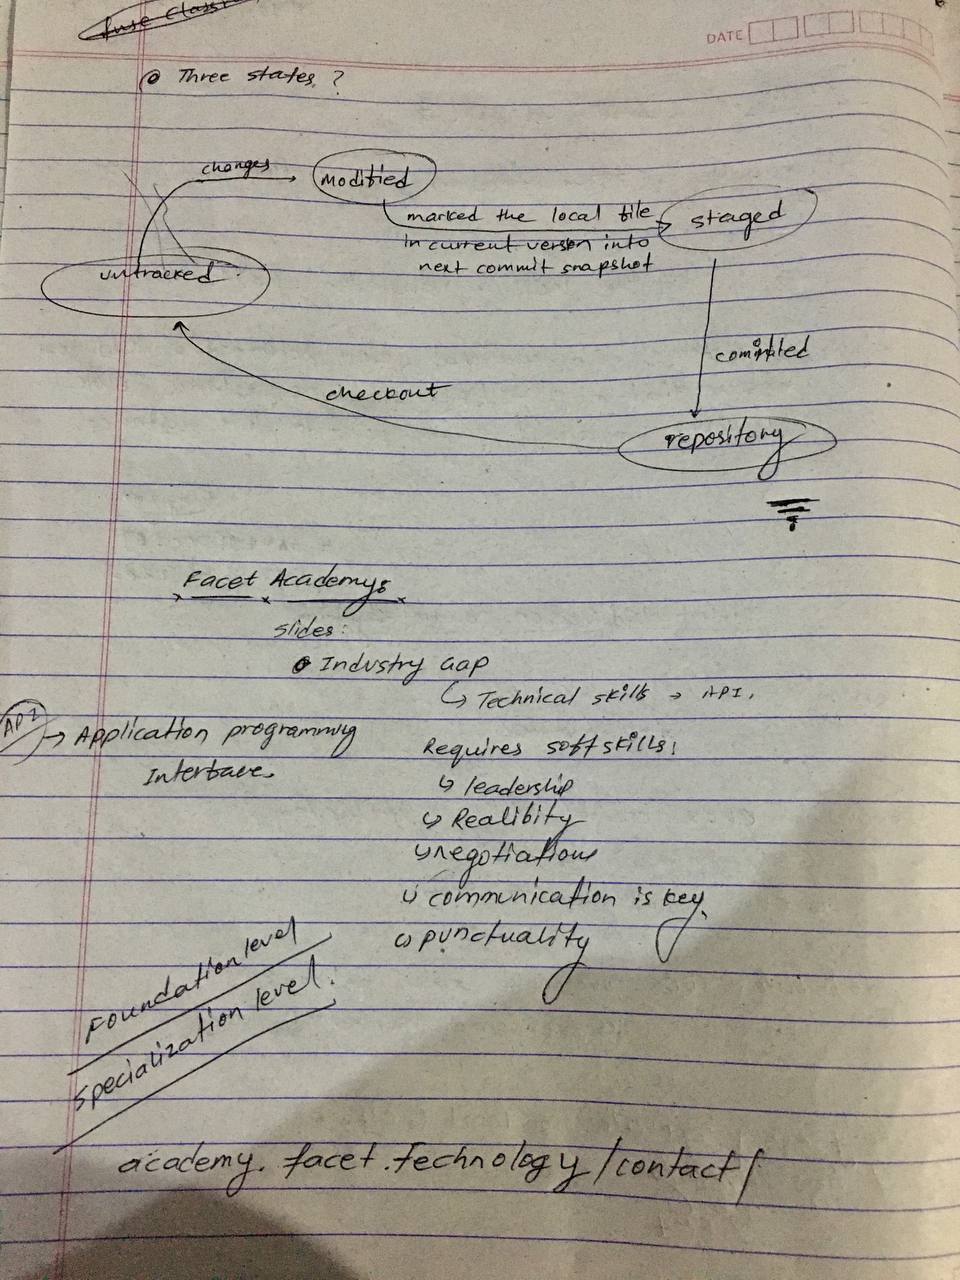 fuse Class
DATE
Three states ?
changes
modified
marked the local file
in current version into
next commit snapshot
staged
untracked
committed
checkout
repository
Facet Academy:
slides:
Industry Gap
Technical skills → API.
API → Application programming
Interface
Requires soft skills:
↳ leadership
↳ Realibity
↳ negotiation
↳ communication is key.
↳ punctuality
Foundation level
Specialization level.
academy.facet.technology/contact/